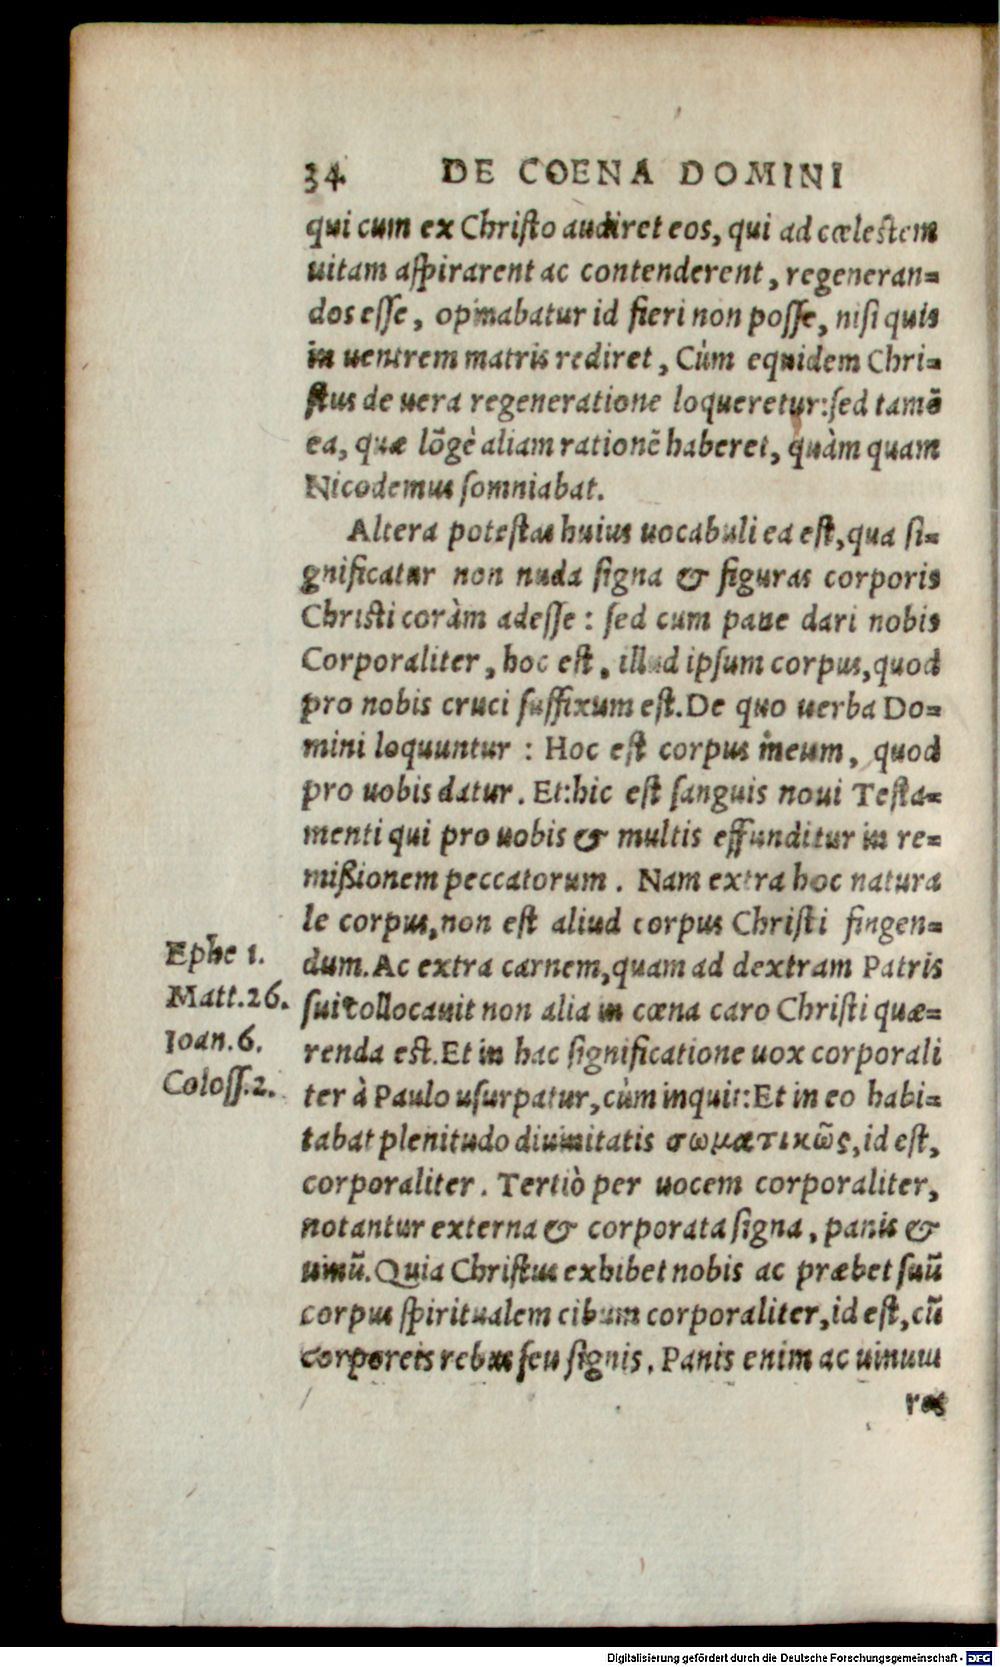 34 DE COENA DOMINI
qui cum ex Christo audiret eos, qui ad cœlestem
uitam aspirarent ac contenderent, regeneran=
dos esse, opinabatur id fieri non posse, nisi quis
in uentrem matris rediret, Cùm equidem Chri=
stus de uera regeneratione loqueretur: sed tamẽ
ea, quæ lõgè aliam rationẽ haberet, quàm quam
Nicodemus somniabat.
Altera potestas huius uocabuli ea est, qua si=
gnificatur non nuda signa & figuras corporis
Christi coràm adesse: sed cum pane dari nobis
Corporaliter, hoc est, illud ipsum corpus, quod
pro nobis cruci suffixum est. De quo uerba Do=
mini loquuntur: Hoc est corpus meum, quod
pro uobis datur. Et: hic est sanguis noui Testa=
menti qui pro uobis & multis effunditur in re=
mißionem peccatorum. Nam extra hoc natura
le corpus, non est aliud corpus Christi fingen=
dum. Ac extra carnem, quam ad dextram Patris
sui collocauit non alia in cœna caro Christi quæ=
renda est. Et in hac significatione uox corporali
ter à Paulo usurpatur, cùm inquit: Et in eo habi=
tabat plenitudo diuinitatis σωματικῶς, id est,
corporaliter. Tertiò per uocem corporaliter,
notantur externa & corporata signa, panis &
uinũ. Quia Christus exhibet nobis ac præbet suũ
corpus spiritualem cibum corporaliter, id est, cũ
corporeis rebus seu signis. Panis enim ac uinum
res
Ephe 1.
Matt. 26.
Ioan. 6.
Coloss. 2.
Digitalisierung gefördert durch die Deutsche Forschungsgemeinschaft - DFG